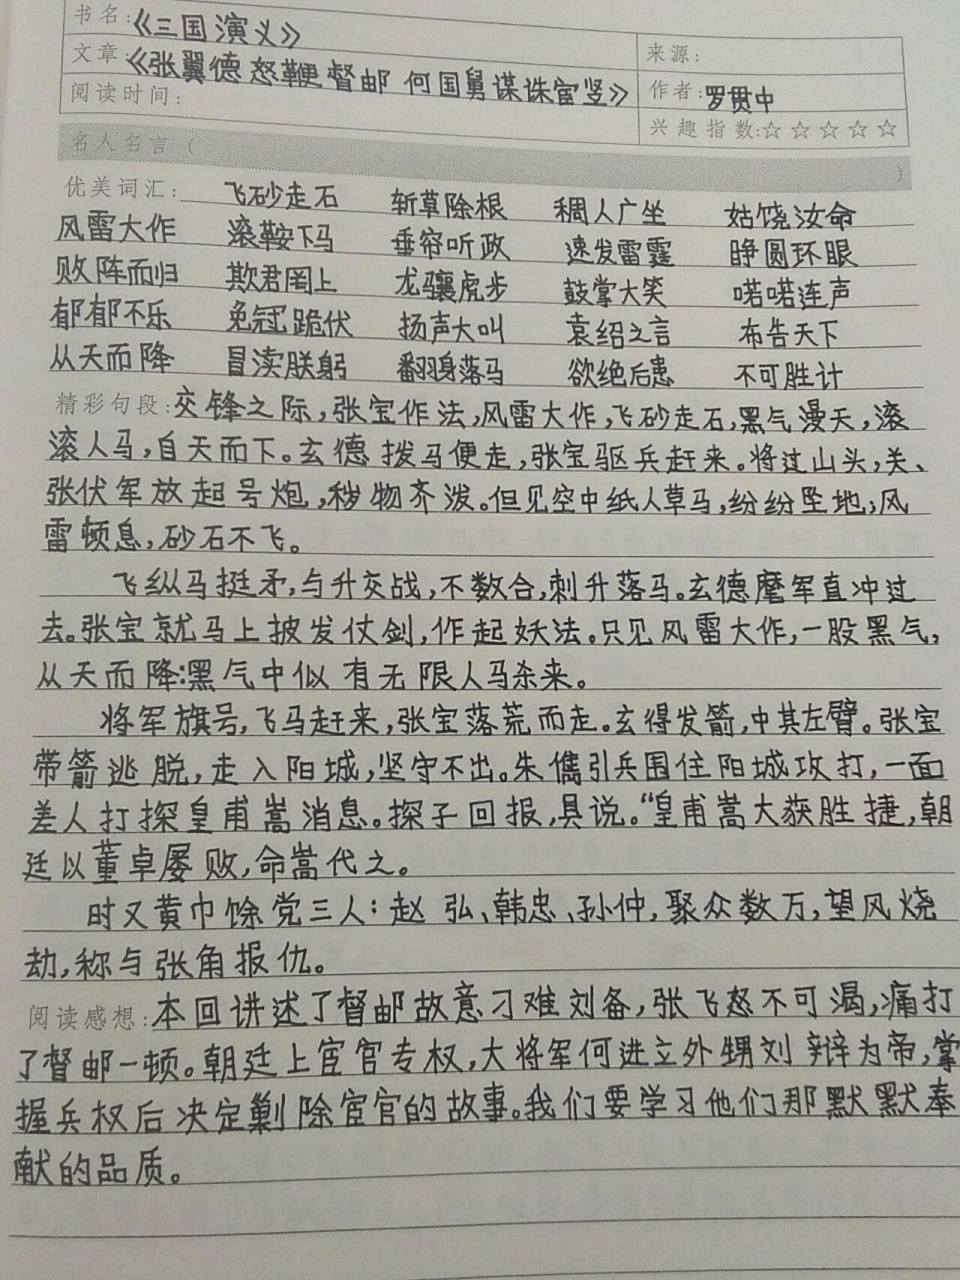 书名:《三国演义》
文章:《张翼德怒鞭督邮 何国舅谋诛宦竖》 来源:
阅读时间: 作者:罗贯中
兴趣指数:☆☆☆☆☆
名人名言( )
优美词汇: 飞砂走石 斩草除根 稠人广坐 姑饶汝命
风雷大作 滚鞍下马 垂帘听政 速发雷霆 睁圆环眼
败阵而归 欺君罔上 龙骧虎步 鼓掌大笑 喏喏连声
郁郁不乐 免冠跪伏 扬声大叫 袁绍之言 布告天下
从天而降 冒渎朕躬 翻身落马 欲绝后患 不可胜计
精彩句段:交锋之际,张宝作法,风雷大作,飞砂走石,黑气漫天,滚
滚人马,自天而下。玄德拨马便走,张宝驱兵赶来。将过山头,关、
张伏军放起号炮,秽物齐泼。但见空中纸人草马,纷纷坠地;风
雷顿息,砂石不飞。
飞纵马挺矛,与升交战,不数合,刺升落马。玄德麾军直冲过
去。张宝就马上披发仗剑,作起妖法。只见风雷大作,一股黑气,
从天而降:黑气中似有无限人马杀来。
将军旗号,飞马赶来,张宝落荒而走。玄得发箭,中其左臂。张宝
带箭逃脱,走入阳城,坚守不出。朱儁引兵围住阳城攻打,一面
差人打探皇甫嵩消息。探子回报,具说。“皇甫嵩大获胜捷,朝
廷以董卓屡败,命嵩代之。
时又黄巾馀党三人:赵弘、韩忠、孙仲,聚众数万,望风烧
劫,称与张角报仇。
阅读感想:本回讲述了督邮故意刁难刘备,张飞怒不可渴,痛打
了督邮一顿。朝廷上宦官专权,大将军何进立外甥刘辩为帝,掌
握兵权后决定剿除宦官的故事。我们要学习他们那默默奉
献的品质。